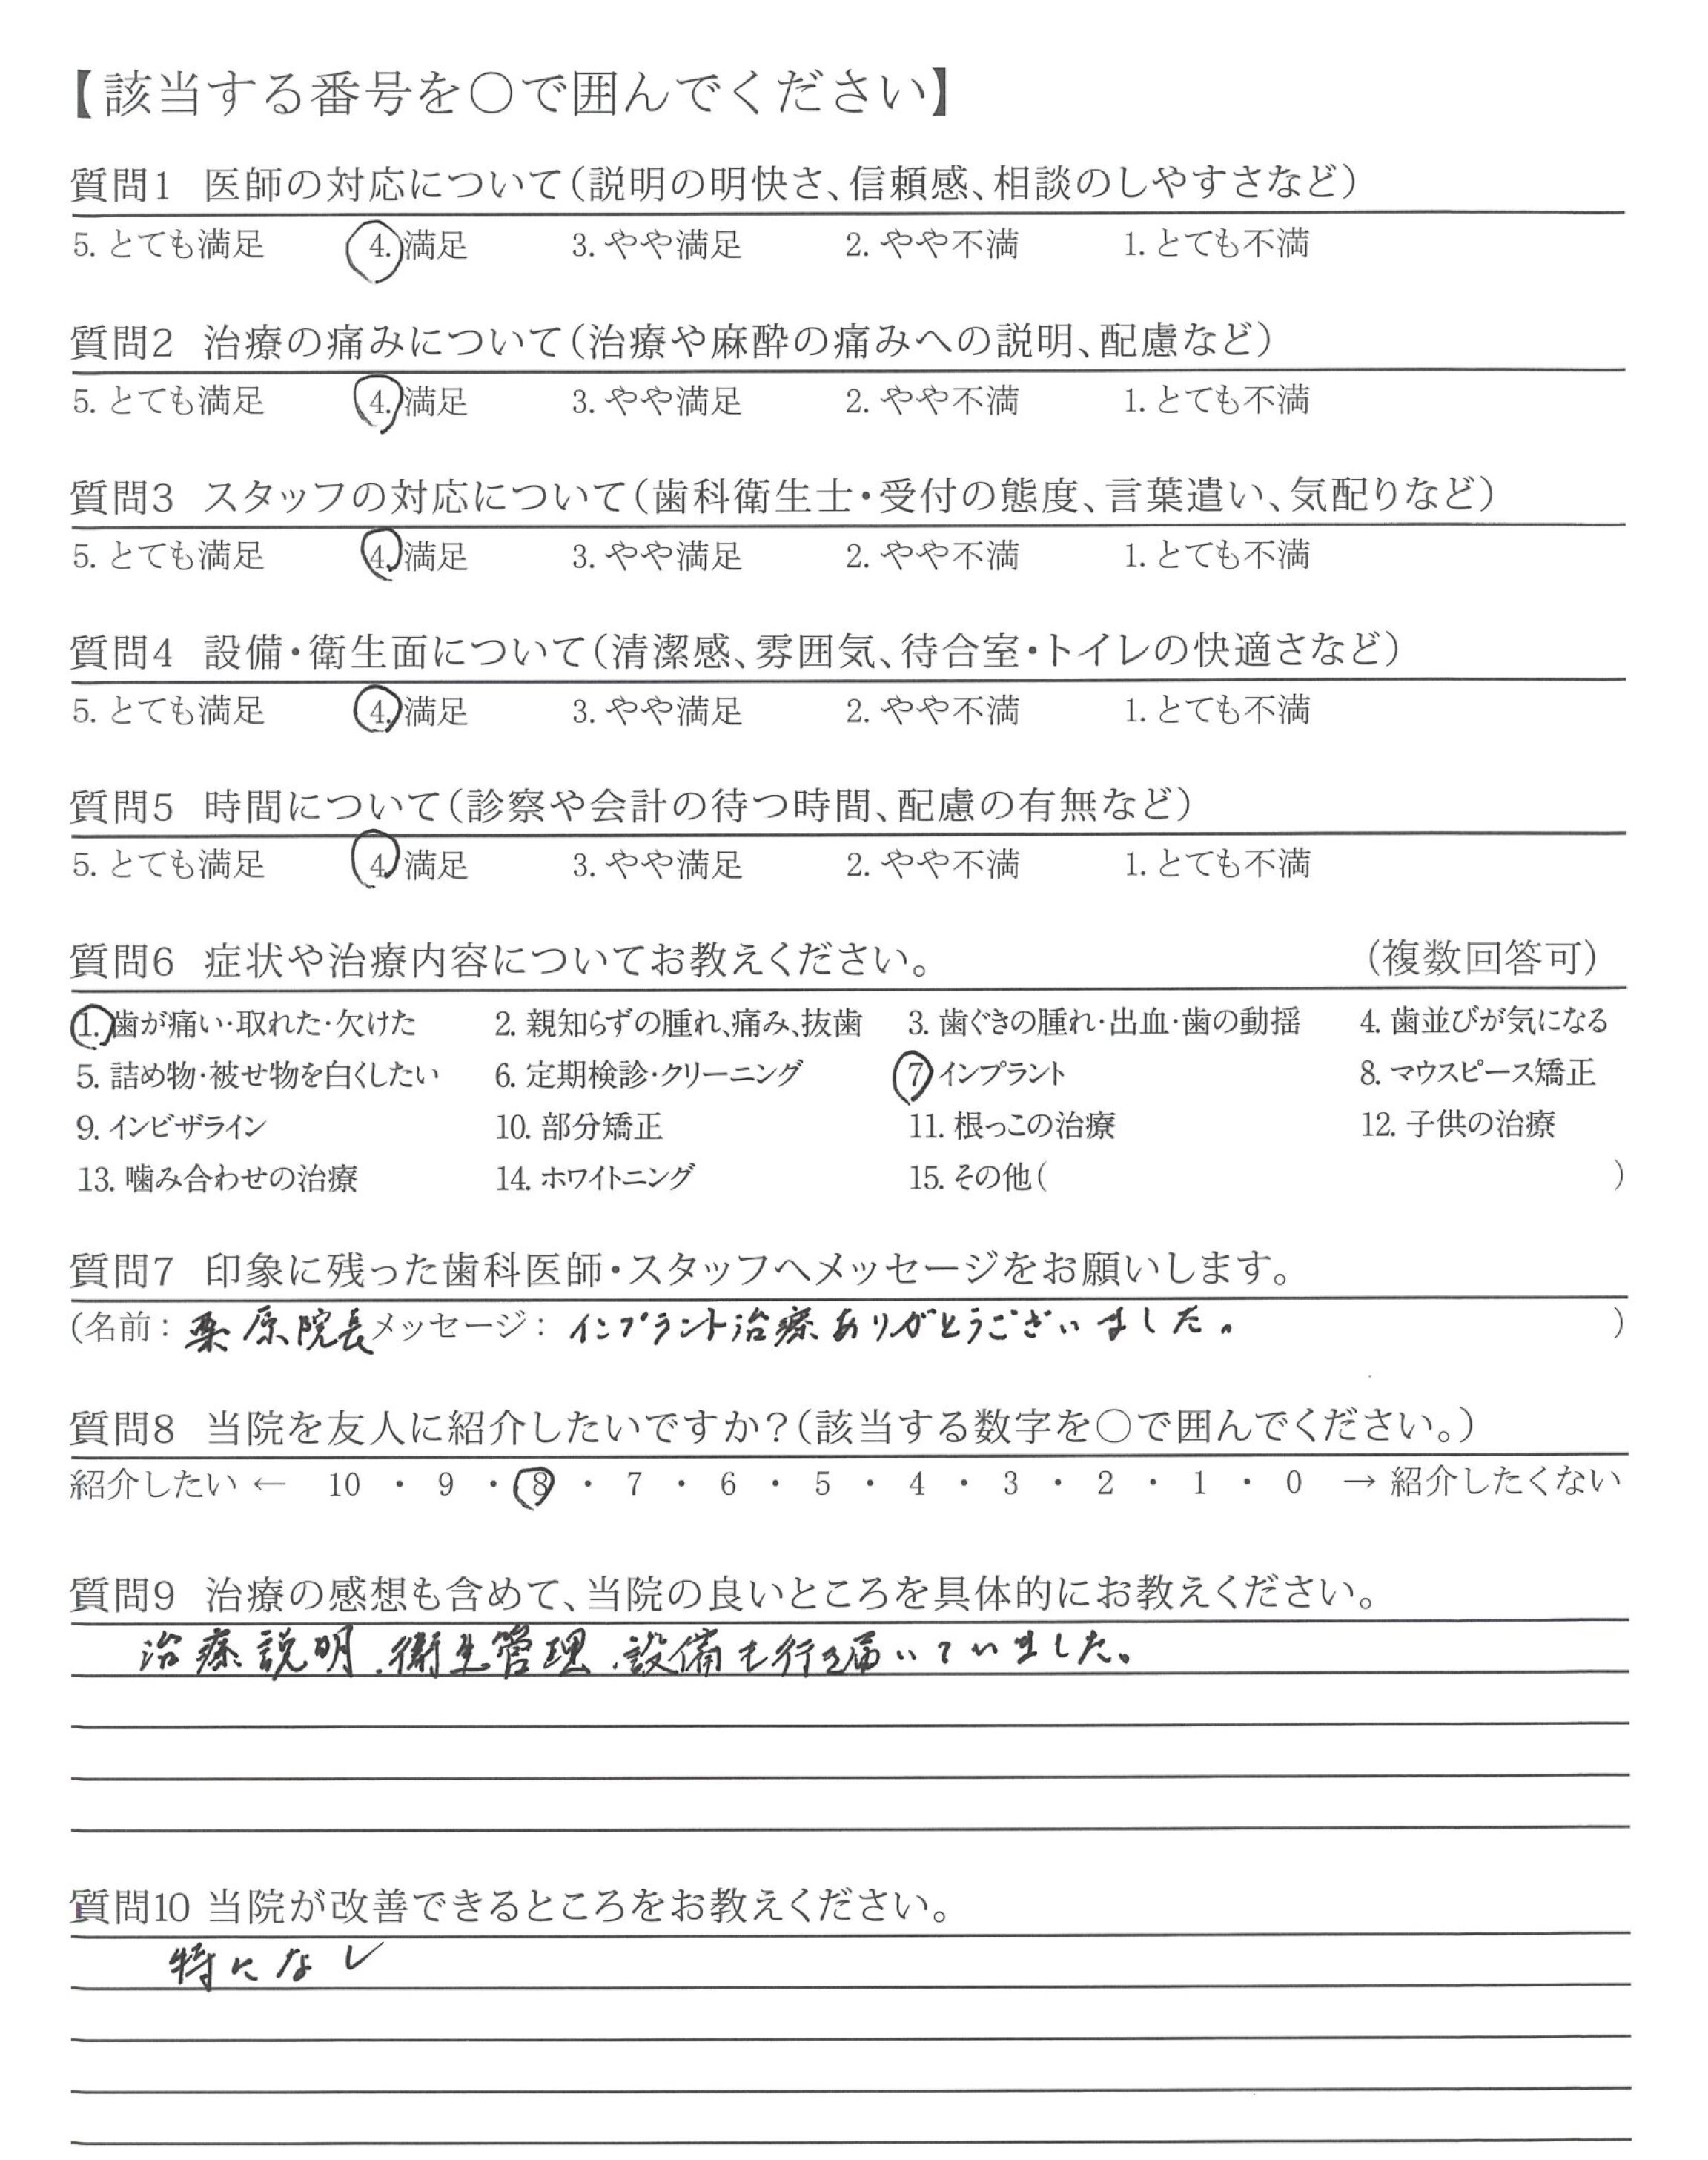 【該当する番号を○で囲んでください】
質問1 医師の対応について(説明の明快さ、信頼感、相談のしやすさなど)
5. とても満足 4. 満足 3. やや満足 2. やや不満 1. とても不満
質問2 治療の痛みについて(治療や麻酔の痛みへの説明、配慮など)
5. とても満足 4. 満足 3. やや満足 2. やや不満 1. とても不満
質問3 スタッフの対応について(歯科衛生士・受付の態度、言葉遣い、気配りなど)
5. とても満足 4. 満足 3. やや満足 2. やや不満 1. とても不満
質問4 設備・衛生面について(清潔感、雰囲気、待合室・トイレの快適さなど)
5. とても満足 4. 満足 3. やや満足 2. やや不満 1. とても不満
質問5 時間について(診察や会計の待つ時間、配慮の有無など)
5. とても満足 4. 満足 3. やや満足 2. やや不満 1. とても不満
質問6 症状や治療内容についてお教えください。 (複数回答可)
1. 歯が痛い・取れた・欠けた 2. 親知らずの腫れ、痛み、抜歯 3. 歯ぐきの腫れ・出血・歯の動揺 4. 歯並びが気になる
5. 詰め物・被せ物を白くしたい 6. 定期検診・クリーニング 7 インプラント 8. マウスピース矯正
9. インビザライン 10. 部分矯正 11. 根っこの治療 12. 子供の治療
13. 噛み合わせの治療 14. ホワイトニング 15. その他( )
質問7 印象に残った歯科医師・スタッフへメッセージをお願いします。
(名前: 栗原院長 メッセージ: インプラント治療ありがとうございました。 )
質問8 当院を友人に紹介したいですか?(該当する数字を○で囲んでください。)
紹介したい ← 10 ・ 9 ・ 8 ・ 7 ・ 6 ・ 5 ・ 4 ・ 3 ・ 2 ・ 1 ・ 0 → 紹介したくない
質問9 治療の感想も含めて、当院の良いところを具体的にお教えください。
治療説明、衛生管理、設備も行き届いていました。
質問10 当院が改善できるところをお教えください。
特になし